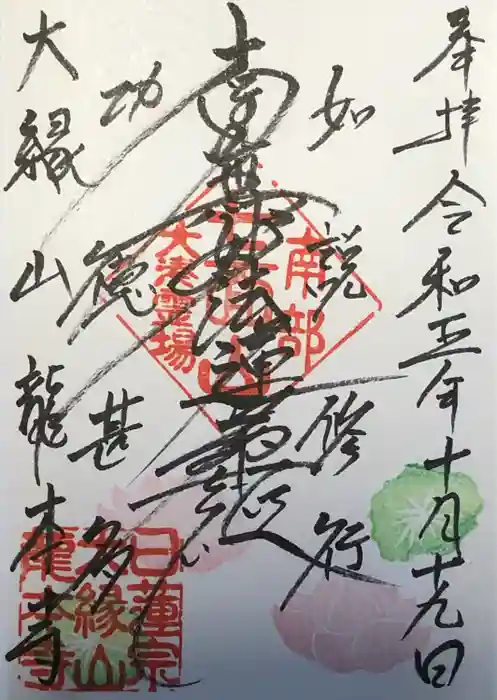 奉拝 令和五年十月十九日
如説修行
南無妙法蓮華経
功徳甚多
大縁山 龍本寺
南部
大法霊場
日蓮宗
大縁山
龍本寺